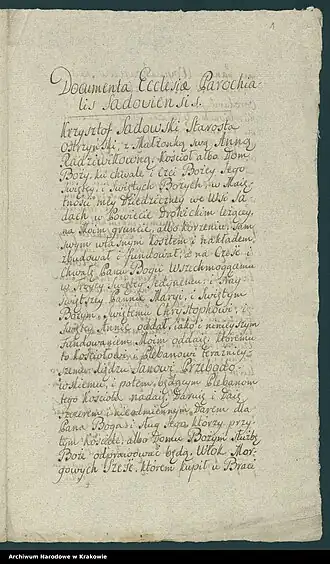 1
Documenta Ecclesiæ Parochia-
lis Sadoviensis.
Krzysztof Sadowski Starosta
Ostrzyński, z Małżonką swą Anną
Radziwiłówną, kościoł albo Dom
Boży, ku chwale i Czci Bożey Jego
Swiętey, i Swiętych Bożych, w Maię-
tności mey Dziedziczney we Wsi Sa-
dach w Powiecie Drohickim leżącey,
na Moim gruncie, albo korzeniu, Sam
Swym własnym kosztem i nakładem,
zbudował i fundował, a na Cześć i
Chwałę Panu Bogu Wszechmogącemu
w Troycy Swiętey Jedynemu, i Nay-
świętszey Pannie Maryi, i Swiętym
Bożym, Swiętemu Chrysztophowi, i
Swiętey Annie oddał, iako i nenieyszym
fundowaniem Moim oddaię, ktoremu
to kościołowi, i Plebanowi teraźniey-
szemu Xiędzu Janowi Przybodo
wskiemu, i potem będącym Plebanom
tego kościoła nadaię, Daruię i Daię
szczerem i nieodmiennym Darem dla
Pana Boga i Sług Jego, ktorzy przy
tym kościele, albo Domu Bożym służbę
Boże odprawować będą, Włok Mor-
gowych Sześć, ktorem kupił u Braci
Archiwum Narodowe w Krakowie